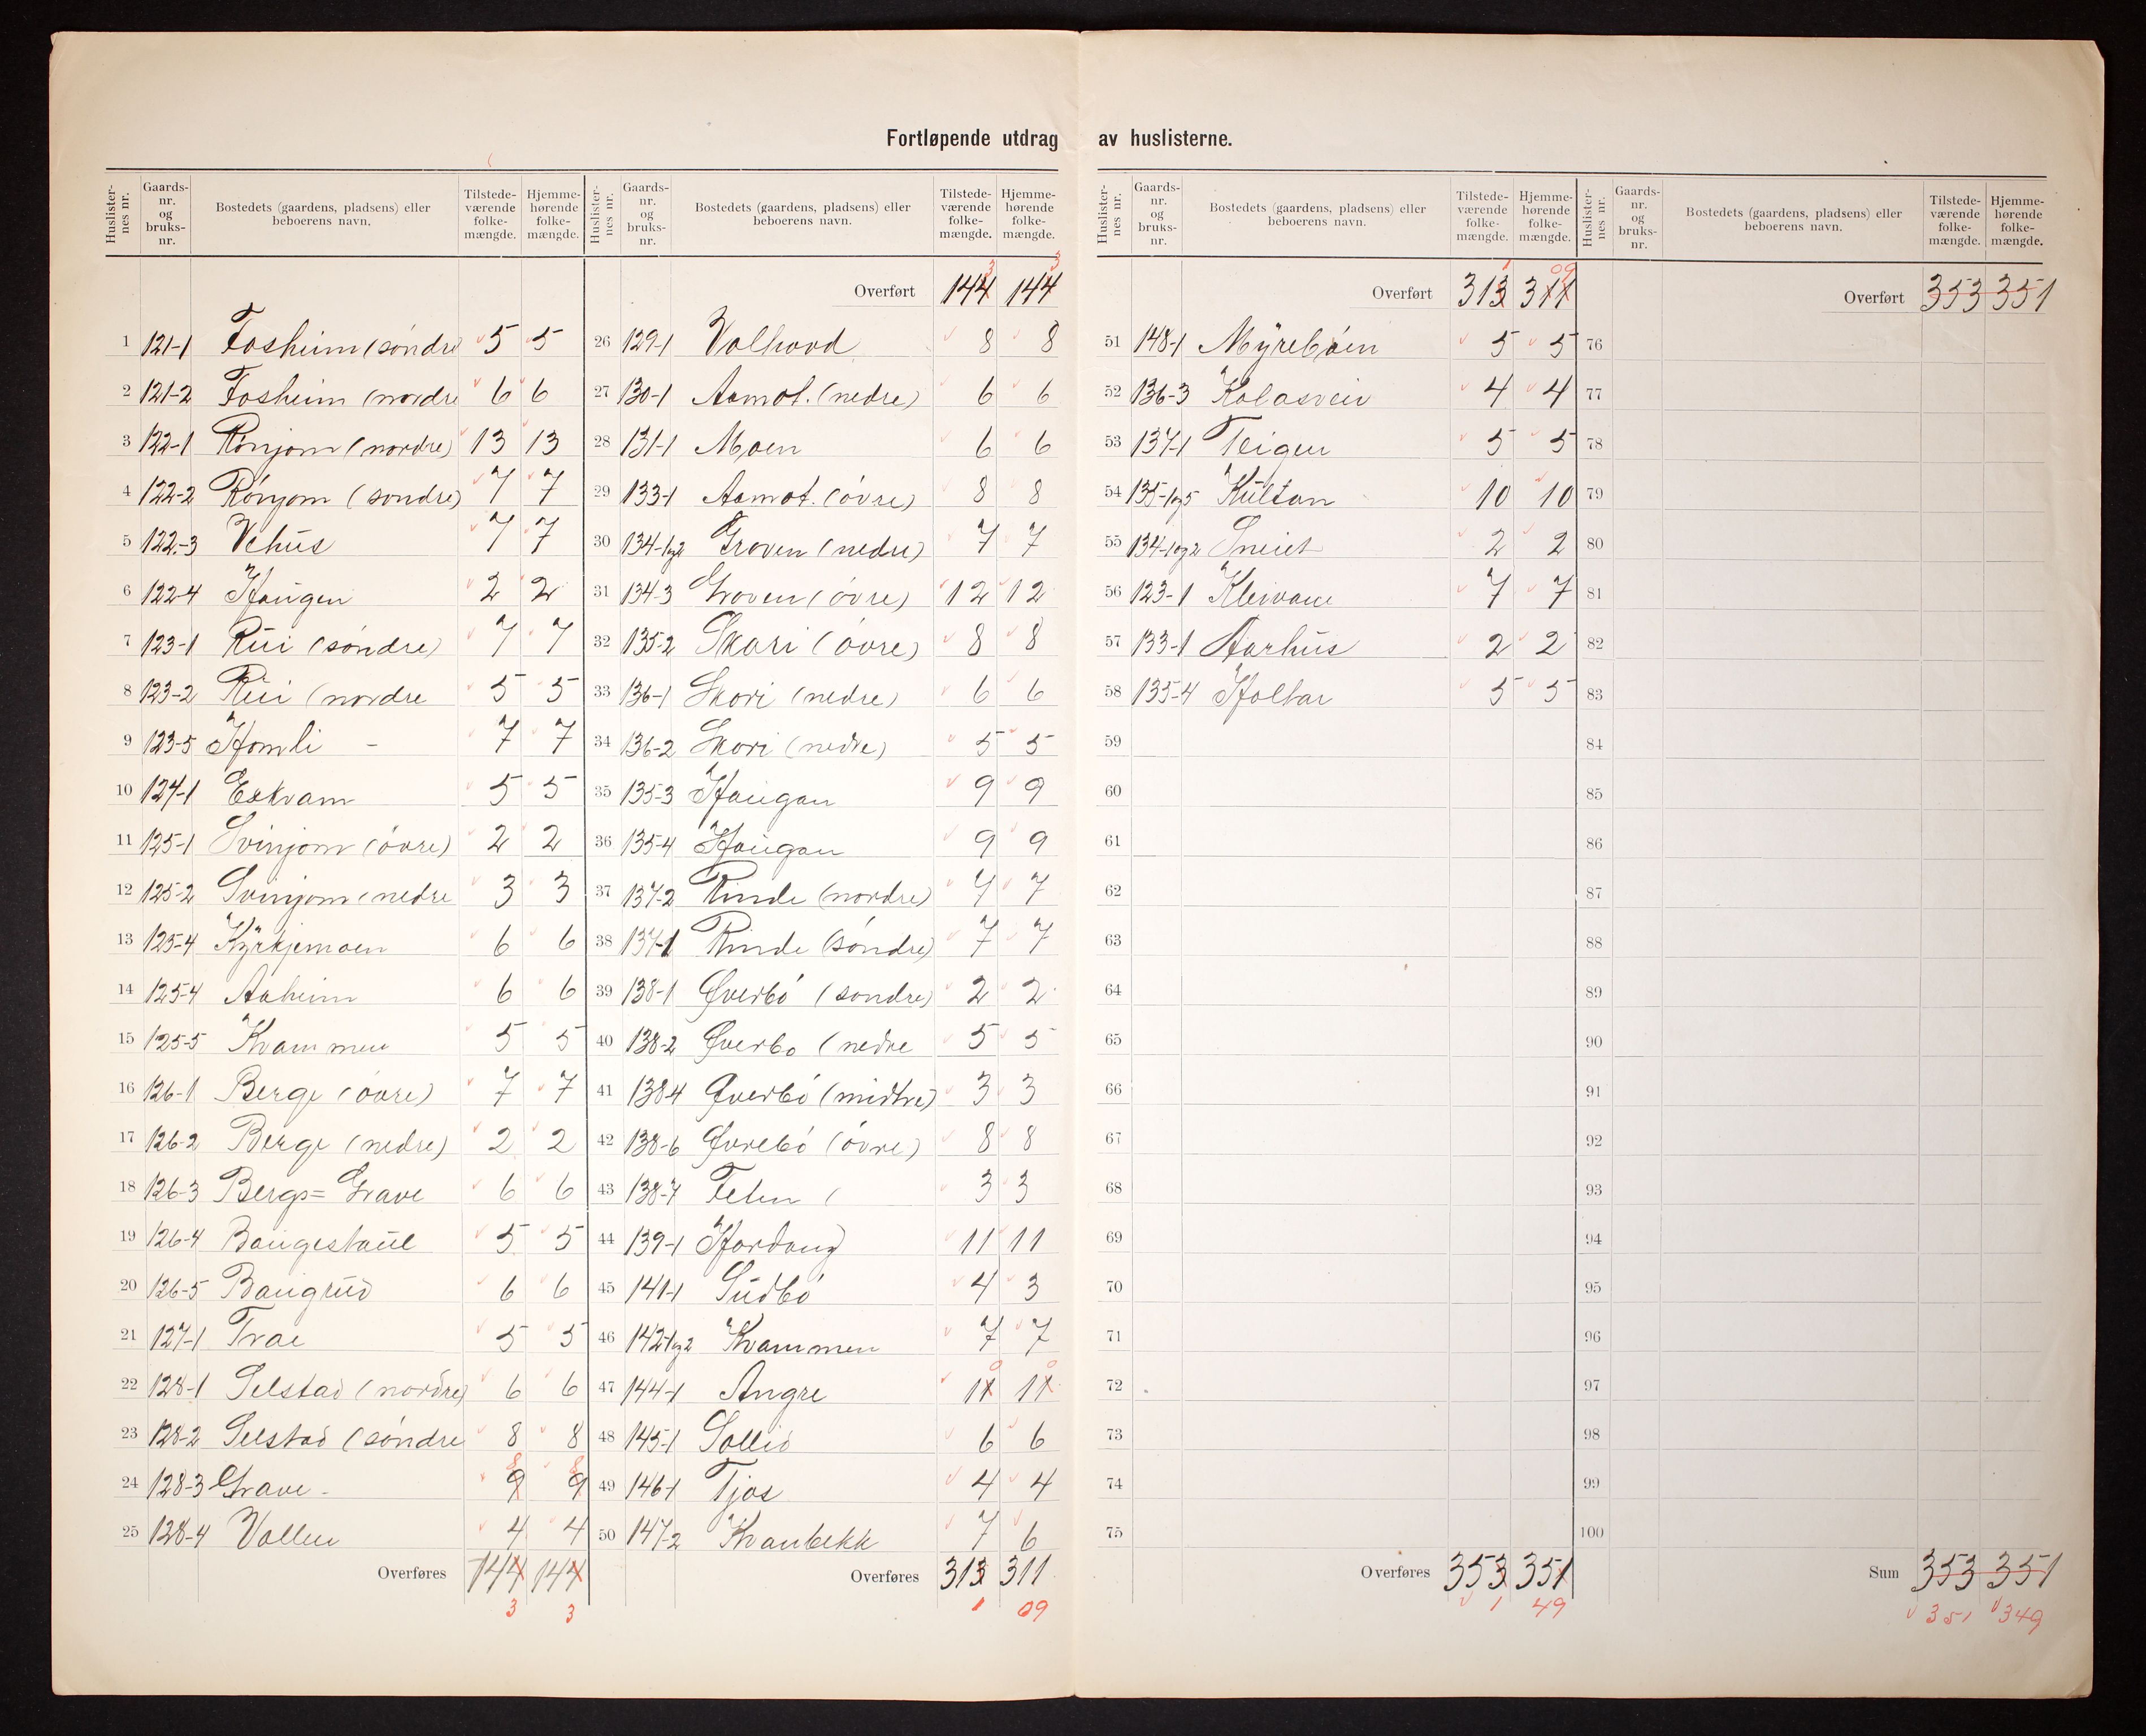 Fortløpende utdrag av huslisterne.
Huslisternes nr. Gaardsnr. og bruksnr. Bostedets (gaardens, pladsens) eller beboerens navn. Tilstedeværende folkemængde. Hjemmehørende folkemængde.
1 121-1 Fosheim (søndre 5 5
2 121-2 Fosheim (nordre 6 6
3 122-1 Rónjom (nordre) 13 13
4 122-2 Rónjom (sondre) 7 7
5 122-3 Vehus 7 7
6 122-4 Haugen 2 2
7 123-1 Rui (søndre) 7 7
8 123-2 Rui (nordre 5 5
9 123-5 Homli - 7 7
10 124-1 Eskvam 5 5
11 125-1 Svinjom (óvre) 2 2
12 125-2 Svinjom (nedre 3 3
13 125-4 Kyrkjemoen 6 6
14 125-4 Aaheim 6 6
15 125-5 Kvammen 5 5
16 126-1 Berge (óvre) 7 7
17 126-2 Berge (nedre) 2 2
18 126-3 Bergs= Grave 6 6
19 126-4 Baugestaul 5 5
20 126-5 Baugrud 6 6
21 127-1 Trae 5 5
22 128-1 Selstad (nordre) 6 6
23 128-2 Selstad (sóndre 8 8
24 128-3 Grave - 9 8 9 8
25 128-4 Vollen 4 4
Overføres 144 144
3 3
Huslisternes nr. Gaardsnr. og bruksnr. Bostedets (gaardens, pladsens) eller beboerens navn. Tilstedeværende folkemængde. Hjemmehørende folkemængde.
3 3
Overført 144 144
26 129-1 Volhovd 8 8
27 130-1 Aamot. (nedre) 6 6
28 131-1 Moen 6 6
29 133-1 Aamot. (óvre) 8 8
30 134-1og2 Groven (nedre) 7 7
31 134-3 Groven (óvre) 12 12
32 135-2 Skori (óvre) 8 8
33 136-1 Skori (nedre) 6 6
34 136-2 Skori (nedre) 5 5
35 135-3 Haugan 9 9
36 135-4 Haugan 9 9
37 137-2 Rinde (nordre) 7 7
38 137-1 Rinde (sóndre) 7 7
39 138-1 Øverbó (sondre) 2 2
40 138-2 Øverbo (nedre 5 5
41 138-4 Øverbó (midtre) 3 3
42 138-6 Øvrebó (óvre) 8 8
43 138-7 Feten ( 3 3
44 139-1 Hordang 11 11
45 141-1 Sudbó 4 3
46 142-1og2 Kvammen 7 7
47 144-1 Angre 11 0 11 0
48 145-1 Sollid 6 6
49 146-1 Tjos 4 4
50 147-2 Kvanbekk 7 6
Overføres 313 311
1 09
Huslisternes nr. Gaardsnr. og bruksnr. Bostedets (gaardens, pladsens) eller beboerens navn. Tilstedeværende folkemængde. Hjemmehørende folkemængde.
1 09
Overført 313 311
51 148-1 Myrebøen 5 5
52 136-3 Kolasvein 4 4
53 137-1 Teigen 5 5
54 135-1og5 Kultan 10 10
55 134-1og2 Sneiet 2 2
56 123-1 Kleivane 7 7
57 133-1 Aarhus 2 2
58 135-4 Holtar 5 5
59
60
61
62
63
64
65
66
67
68
69
70
71
72
73
74
75
Overføres 353 351
1 49
Huslisternes nr. Gaardsnr. og bruksnr. Bostedets (gaardens, pladsens) eller beboerens navn. Tilstedeværende folkemængde. Hjemmehørende folkemængde.
Overført 353 351
76
77
78
79
80
81
82
83
84
85
86
87
88
89
90
91
92
93
94
95
96
97
98
99
100
Sum 353 351
351 349